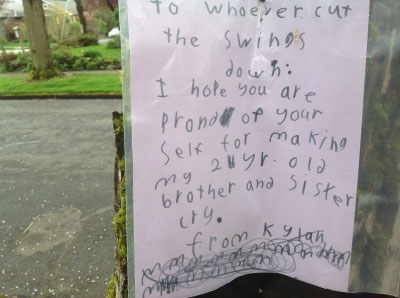 To whoever cut
the swings
down:
I hope you are
proud of your
self for making
my 2 yr. old
brother and sister
cry.
from Kylah